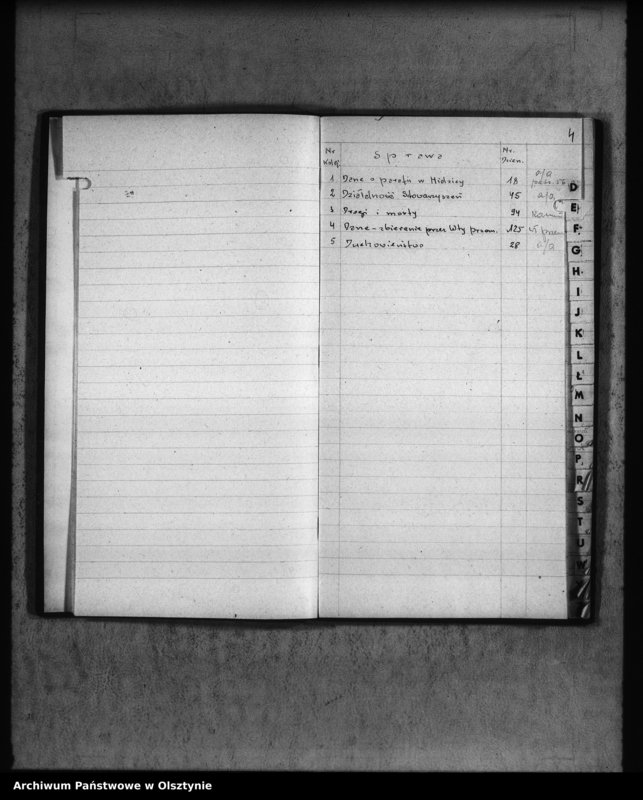 4
Nr Kolej. Sprawa Nr. Dzien.
1 Dane o parafii w Nidzicy 18 a/a
2 Działalność Stowarzyszeń 45 a/a
3 Drogi i mosty 94
4 Dane - zbieranie przez 125
5 Duchowieństwo 28 a/a
D
E
F
G
H
I
J
K
L
Ł
M
N
O
P
R
S
T
U
W
Archiwum Państwowe w Olsztynie